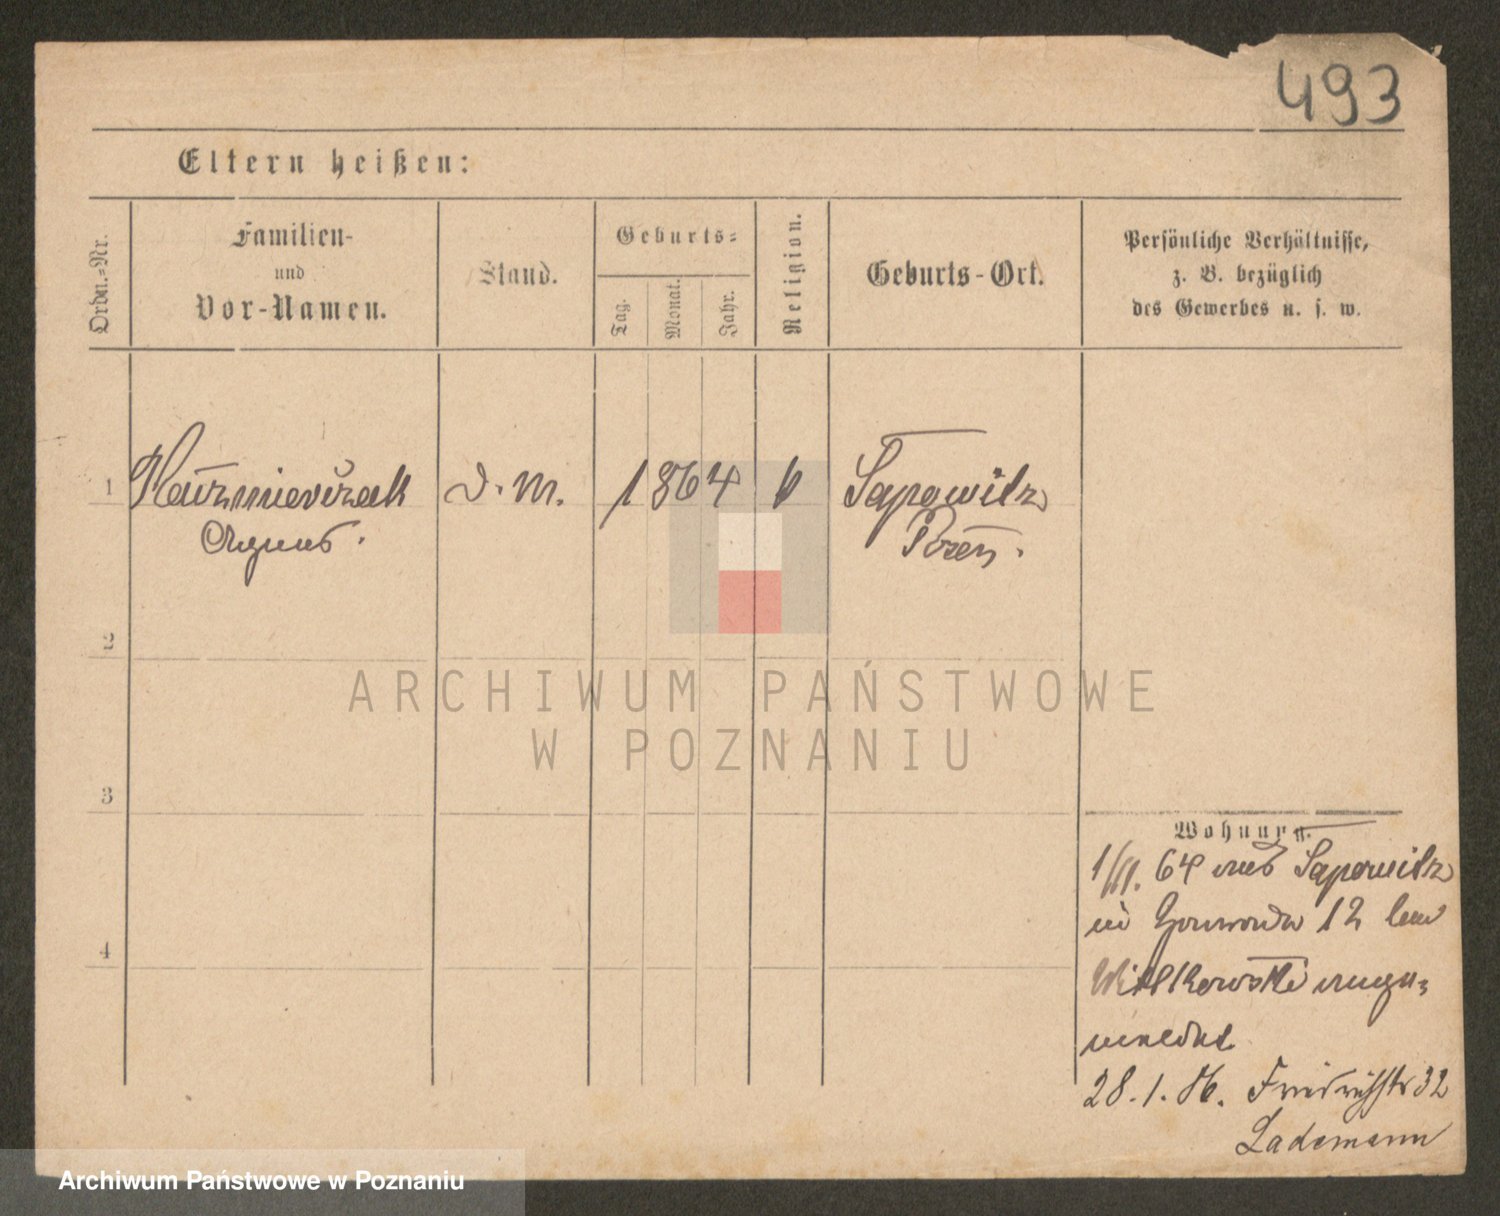 493
Eltern heißen:
Ordn.=Nr.
Familien-
und
Vor-Namen.
Stand.
Geburts=
Tag.
Monat.
Jahr.
Religion.
Geburts-Ort.
Persönliche Verhältnisse,
z. B. bezüglich
des Gewerbes u. s. w.
1
Kaźmierczak
Agnes.
D. M.
1864
k
Sapowitz
Posen.
2
3
4
Wohnung.
64 aus Sapowitz
in 12 bei
Witkowski ange=
meldet
28.1.86. Friedrichstr 32
Lademann
ARCHIWUM PAŃSTWOWE
W POZNANIU
Archiwum Państwowe w Poznaniu